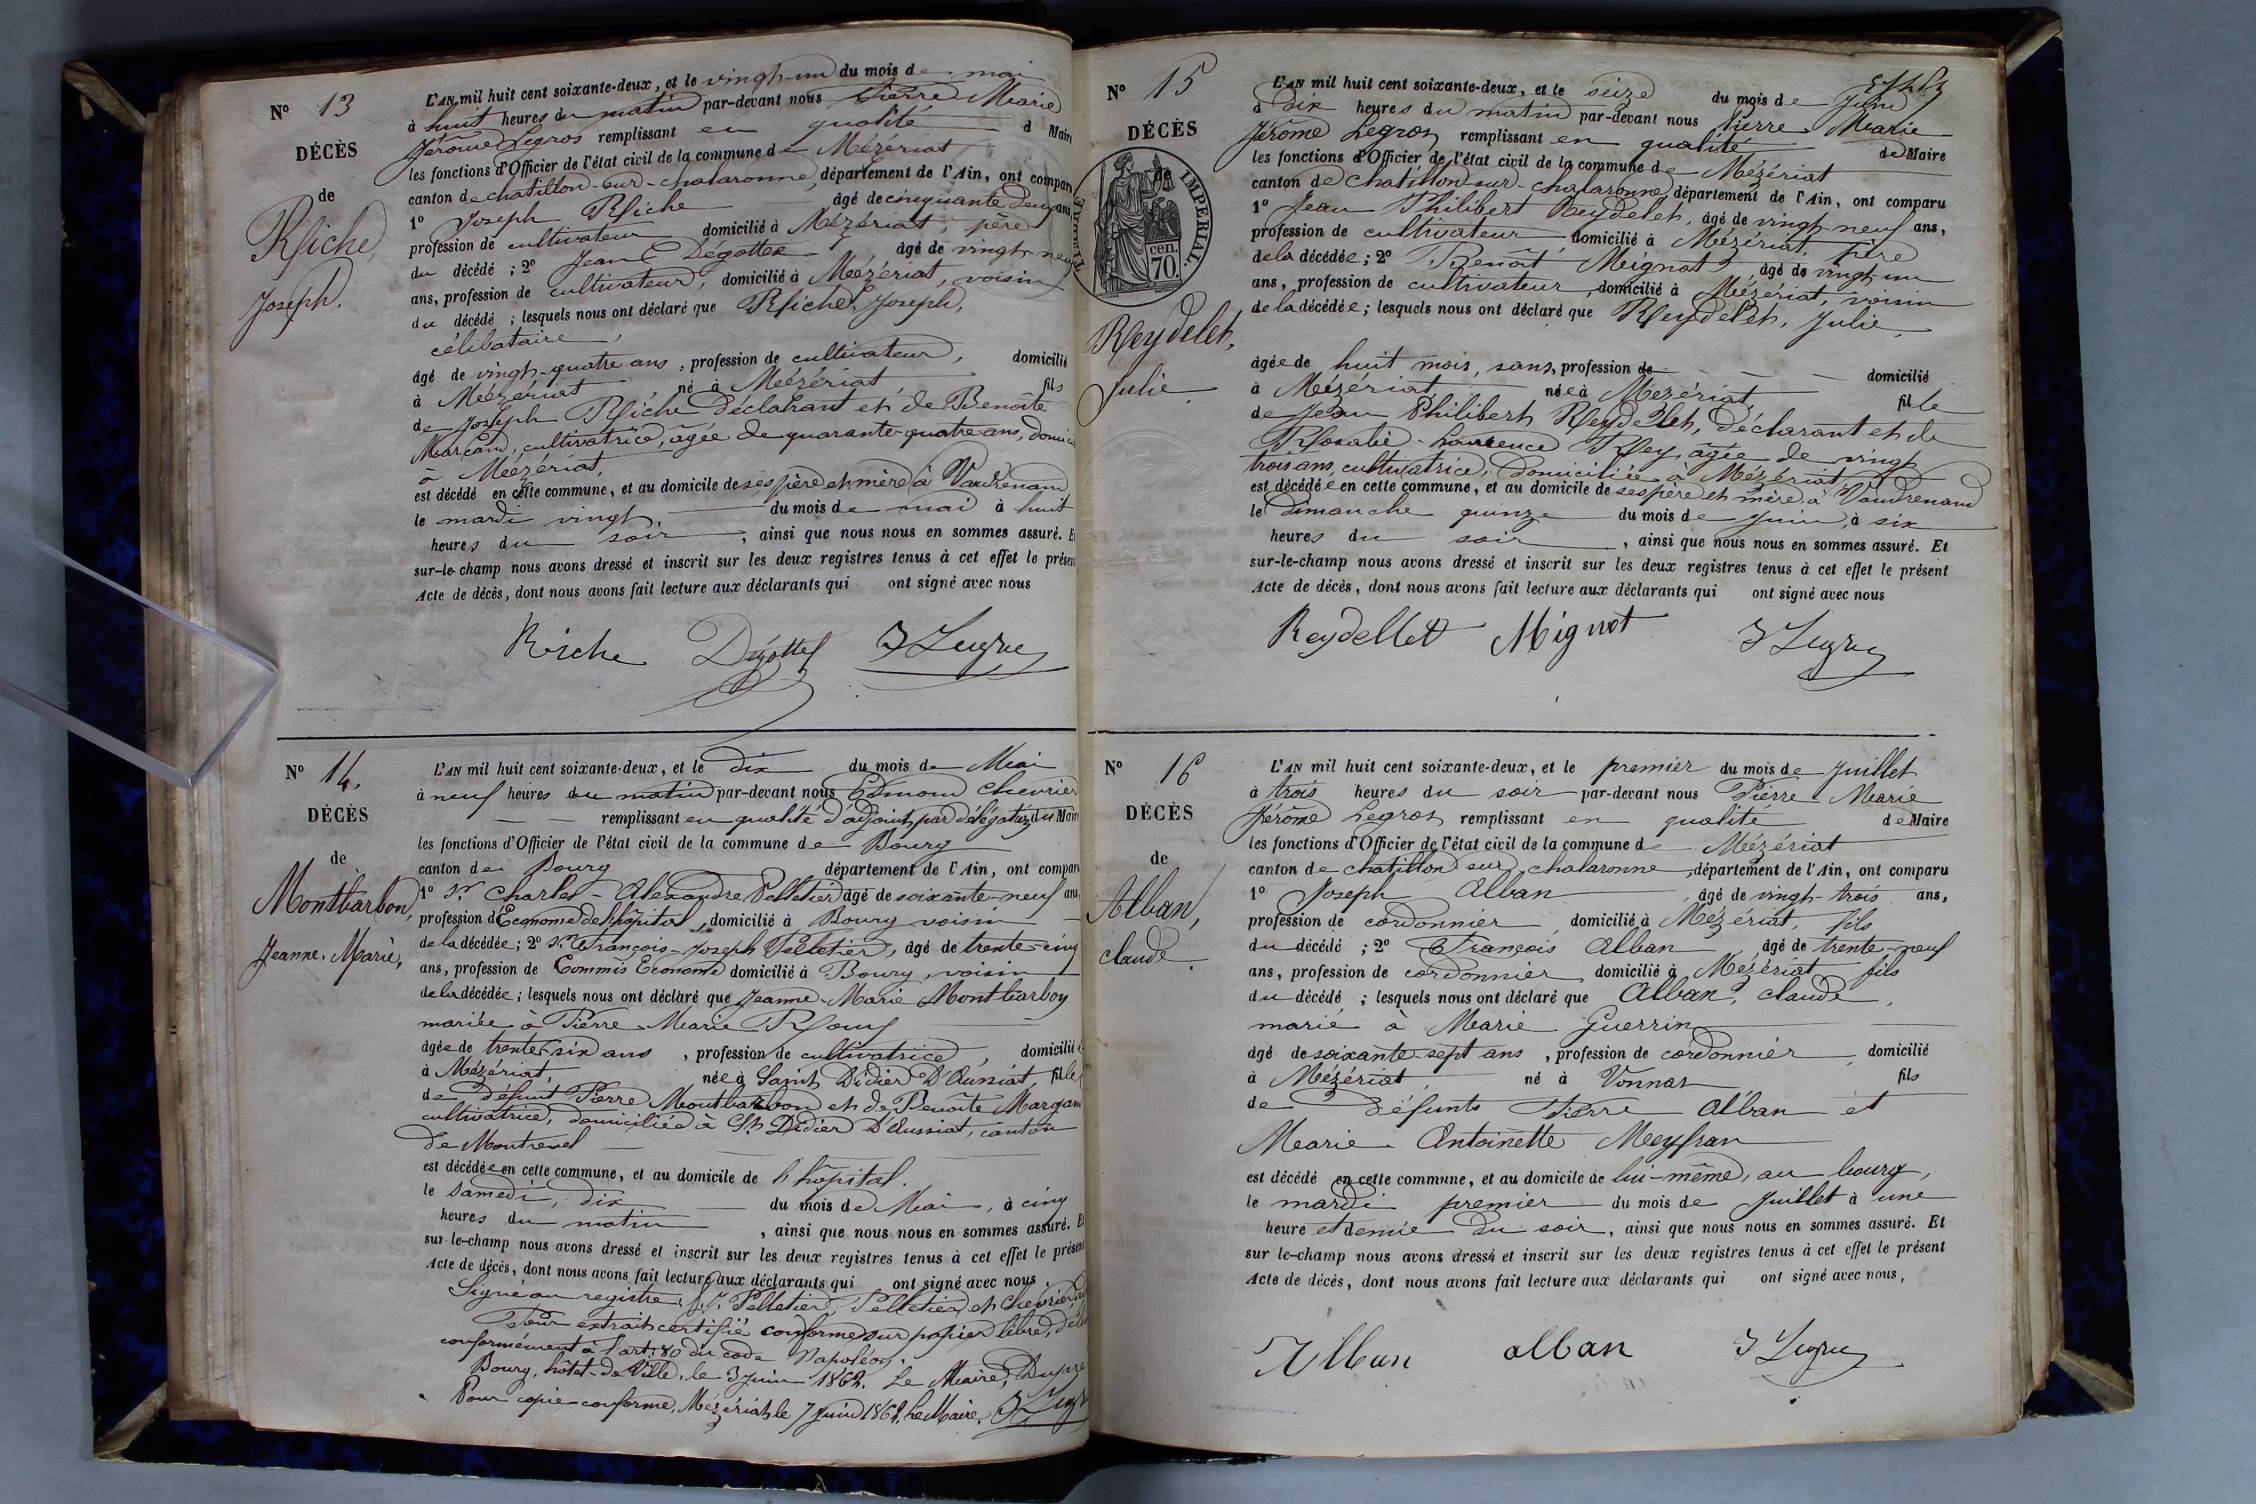 N° 13
DÉCÈS
de
Riche,
Joseph.
L'AN mil huit cent soixante-deux, et le vingt-un du mois de mai
à huit heures du matin par-devant nous Pierre Marie
Jérôme Legros remplissant en qualité d Maire
les fonctions d'Officier de l'état civil de la commune de Mézériat
canton de chatillon-sur-chalaronne, département de l'Ain, ont comparu
1° Joseph Riche âgé de cinquante deux ans,
profession de cultivateur domicilié à Mézériat, père
du décédé ; 2° Jean Dégottex âgé de vingt neuf
ans, profession de cultivateur, domicilié à Mézériat, voisin
du décédé ; lesquels nous ont déclaré que Riche, Joseph,
célibataire,
âgé de vingt-quatre ans, profession de cultivateur, domicilié
à Mézériat né à Mézériat fils
de Joseph Riche déclarant et de Benoîte
cultivatrice, âgée de quarante-quatre ans,
à Mézériat,
est décédé en cette commune, et au domicile de ses père et mère à Vaudrenand
le mardi vingt du mois de mai à huit
heures du soir, ainsi que nous nous en sommes assuré. Et
sur-le-champ nous avons dressé et inscrit sur les deux registres tenus à cet effet le présent
Acte de décès, dont nous avons fait lecture aux déclarants qui ont signé avec nous
Riche Dégottex
N° 14.
DÉCÈS
de
Montbarbon,
Jeanne. Marie,
L'AN mil huit cent soixante-deux, et le dix du mois de Mai
à neuf heures du matin par-devant nous Edmond Chevrier
remplissant en qualité d'adjoint par délégation du Maire
les fonctions d'Officier de l'état civil de la commune de Bourg
canton de Bourg département de l'Ain, ont comparu
1° Sr Charles-Alexandre Pelletier âgé de soixante-neuf ans,
profession d'Econome de l'hôpital, domicilié à Bourg voisin
de la décédée ; 2° Sr François-Joseph Pelletier, âgé de trente-cinq
ans, profession de Commis Econome domicilié à Bourg, voisin
de la décédée ; lesquels nous ont déclaré que Jeanne-Marie Montbarbon
mariée à Pierre-Marie
âgée de trente-six ans, profession de cultivatrice, domiciliée
à Mézériat, née à Saint Didier D'Aussiat, fille
de défunt Pierre Montbarbon et de Benoîte
cultivatrice, domiciliée à St Didier D'Aussiat, canton
de Montrevel
est décédée en cette commune, et au domicile de l'hôpital.
le samedi, dix du mois de Mai, à cinq
heures du matin, ainsi que nous nous en sommes assuré. Et
sur-le-champ nous avons dressé et inscrit sur les deux registres tenus à cet effet le présent
Acte de décès, dont nous avons fait lecture aux déclarants qui ont signé avec nous.
Signé au registre: F. J. Pelletier, Pelletier et Chevrier
Pour extrait certifié conforme sur papier libre,
conformément à l'art: 80 du code Napoléon.
Bourg, hôtel-de-Ville, le 3 juin 1862. Le Maire,
Pour copie conforme, Mézériat, le 7 juin 1862, Le Maire,
N° 15
DÉCÈS
de
TIMBRE IMPÉRIAL.
70 cen.
Reydelet,
Julie.
L'AN mil huit cent soixante-deux, et le seize du mois de Juin
à dix heures du matin par-devant nous Pierre Marie
Jérôme Legros remplissant en qualité de Maire
les fonctions d'Officier de l'état civil de la commune de Mézériat
canton de Chatillon-sur-chalaronne département de l'Ain, ont comparu
1° Jean Philibert Reydelet, âgé de vingt-neuf ans,
profession de cultivateur domicilié à Mézériat, père
de la décédée ; 2° Benoît Mignot âgé de vingt-un
ans, profession de cultivateur, domicilié à Mézériat, voisin
de la décédée ; lesquels nous ont déclaré que Reydelet, Julie,
âgée de huit mois, sans, profession de domicilié
à Mézériat, née à Mézériat fille
de Jean Philibert Reydelet, déclarant et de
Rosalie-Laurence Rey, âgée de vingt
trois ans, cultivatrice, domiciliée à Mézériat,
est décédée en cette commune, et au domicile de ses père et mère à Vaudrenand
le Dimanche quinze du mois de juin, à six
heures du soir, ainsi que nous nous en sommes assuré. Et
sur-le-champ nous avons dressé et inscrit sur les deux registres tenus à cet effet le présent
Acte de décès, dont nous avons fait lecture aux déclarants qui ont signé avec nous
Reydellet Mignot
N° 16
DÉCÈS
de
Alban,
claude.
L'AN mil huit cent soixante-deux, et le premier du mois de Juillet
à trois heures du soir par-devant nous Pierre-Marie
Jérôme Legros remplissant en qualité de Maire
les fonctions d'Officier de l'état civil de la commune de Mézériat
canton de chatillon sur chalaronne, département de l'Ain, ont comparu
1° Joseph Alban, âgé de vingt-trois ans,
profession de cordonnier domicilié à Mézériat, fils
du décédé ; 2° François Alban, âgé de trente-neuf
ans, profession de cordonnier domicilié à Mézériat fils
du décédé ; lesquels nous ont déclaré que Alban, claude,
marié à Marie Guerrin
âgé de soixante-sept ans, profession de cordonnier, domicilié
à Mézériat, né à Vonnas fils
de défunts Pierre Alban et
Marie Antoinette
est décédé en cette commune, et au domicile de lui-même, au bourg,
le mardi premier du mois de Juillet à une
heure et demie du soir, ainsi que nous nous en sommes assuré. Et
sur le-champ nous avons dressé et inscrit sur les deux registres tenus à cet effet le présent
Acte de décès, dont nous avons fait lecture aux déclarants qui ont signé avec nous,
Alban alban